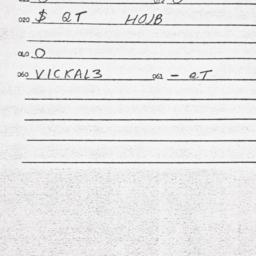 020 $ QT HOJB
040 O
060 VICKAL3 061 - QT